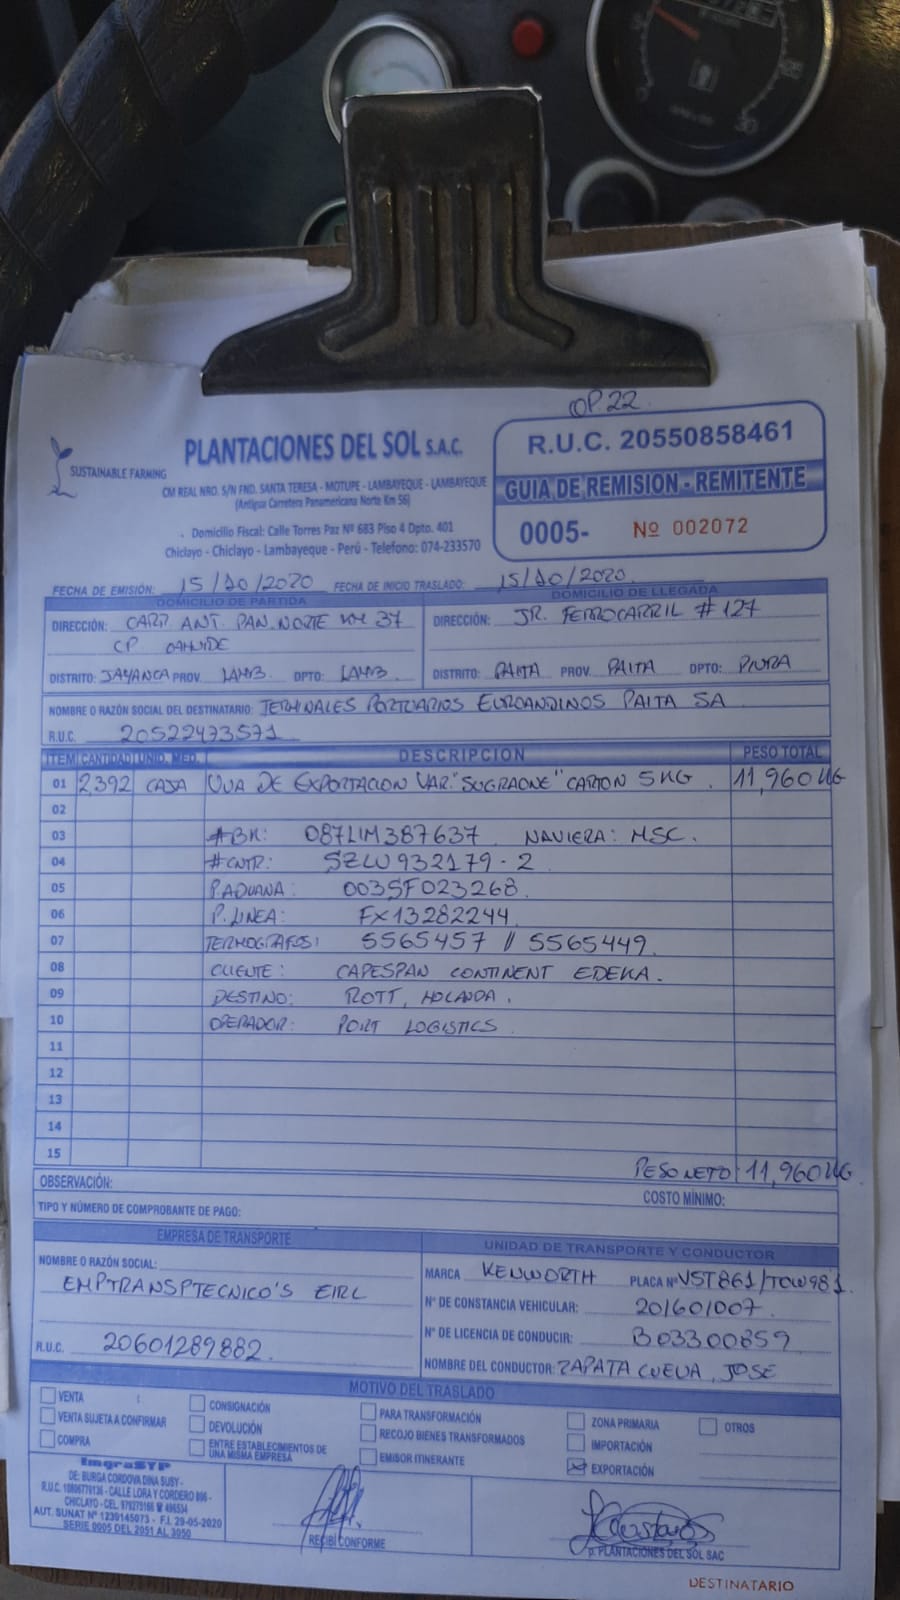 OP.22
SUSTAINABLE FARMING
PLANTACIONES DEL SOL S.A.C.
CM REAL NRO. S/N FND. SANTA TERESA - MOTUPE - LAMBAYEQUE - LAMBAYEQUE
(Antigua Carretera Panamericana Norte Km 56)
Domicilio Fiscal: Calle Torres Paz Nº 683 Piso 4 Dpto. 401
Chiclayo - Chiclayo - Lambayeque - Perú - Telefono: 074-233570
R.U.C. 20550858461
GUIA DE REMISION - REMITENTE
0005- Nº 002072
FECHA DE EMISIÓN: 15/10/2020 FECHA DE INICIO TRASLADO: 15/10/2020
DOMICILIO DE PARTIDA
DIRECCIÓN: CARR. ANT. PAN. NORTE KM 37
CP. CAHUIDE
DISTRITO: JAYANCA PROV. LAMB. DPTO: LAMB.
DOMICILIO DE LLEGADA
DIRECCIÓN: JR. FERROCARRIL # 127
DISTRITO: PAITA PROV. PAITA DPTO: PIURA
NOMBRE O RAZÓN SOCIAL DEL DESTINATARIO: TERMINALES PORTUARIOS EUROANDINOS PAITA SA
R.U.C. 20522473571
ITEM CANTIDAD UNID. MED. DESCRIPCION PESO TOTAL
01 2,392 CAJA UVA DE EXPORTACION VAR. "SUGRAONE" CARTON 5KG. 11,960 KG
02
03 #BK: 087LIM387637 NAVIERA: MSC.
04 #CNTR: SZLU 932179-2
05 P.ADUANA: 0035F023268
06 P.LINEA: FX13282244
07 TERMOGRAFOS: 5565457 // 5565449
08 CLIENTE: CAPESPAN CONTINENT EDEKA.
09 DESTINO: ROTT, HOLANDA.
10 OPERADOR: PORT LOGISTICS
11
12
13
14
15
PESO NETO: 11,960 KG.
OBSERVACIÓN:
COSTO MÍNIMO:
TIPO Y NÚMERO DE COMPROBANTE DE PAGO:
EMPRESA DE TRANSPORTE
NOMBRE O RAZÓN SOCIAL:
EMPTRANSPTECNICO'S EIRL
R.U.C. 20601289882
UNIDAD DE TRANSPORTE Y CONDUCTOR
MARCA KENWORTH PLACA Nº V5T861/TOW981
N° DE CONSTANCIA VEHICULAR: 201601007
N° DE LICENCIA DE CONDUCIR: B03300859
NOMBRE DEL CONDUCTOR: ZAPATA CUEVA, JOSE
MOTIVO DEL TRASLADO
VENTA
VENTA SUJETA A CONFIRMAR
COMPRA
CONSIGNACIÓN
DEVOLUCIÓN
ENTRE ESTABLECIMIENTOS DE
UNA MISMA EMPRESA
PARA TRANSFORMACIÓN
RECOJO BIENES TRANSFORMADOS
EMISOR ITINERANTE
ZONA PRIMARIA
IMPORTACIÓN
EXPORTACIÓN
OTROS
ImgraSYP
DE: BURGA CORDOVA DINA SUSY -
CALLE LORA Y CORDERO
CHICLAYO - CEL.
AUT. SUNAT Nº 1239145073 - F.I. 29-05-2020
SERIE 0005 DEL 2051 AL 3050
RECIBÍ CONFORME
p. PLANTACIONES DEL SOL SAC
DESTINATARIO